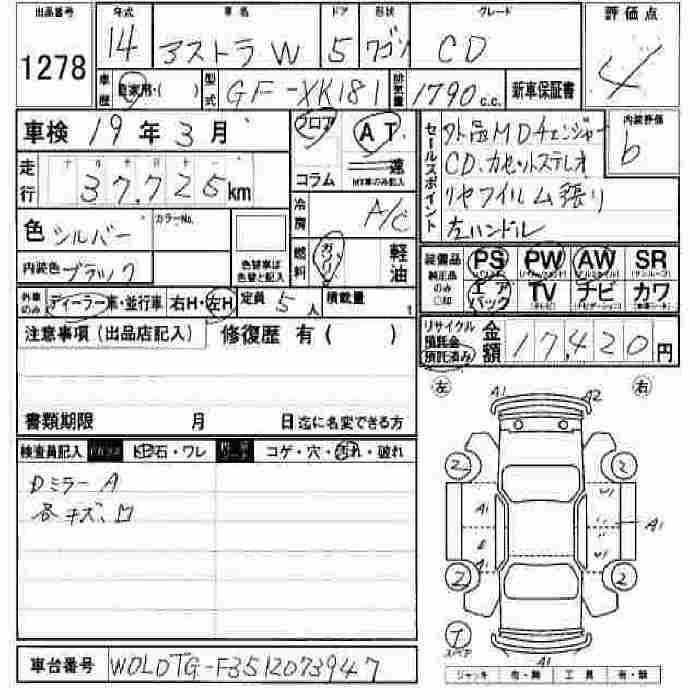 出品番号 年式 車名 ドア 形状 グレード 評価点
1278 14 アストラW 5 ワゴン CD 4
車歴 自家用・( ) 型式 GF-XK181 排気量 1790 c.c. 新車保証書
車検 19年3月 フロア AT セールスポイント 外品MDチェンジャー 内装評価
コラム 速 CD.カセットステレオ b
MT車のみ記入
走行 37,725km 冷房 A/C リヤフイルム張り
色 シルバー カラーNo. 左ハンドル
色替車は色替と記入 燃料 ガソリン 軽油
内装色 ブラック 装備品 純正品のみ○印 PS PW AW SR
エアバック TV ナビ カワ
外車のみ ディーラー車・並行車 右H・左H 定員 5人 積載量 t
注意事項(出品店記入) 修復歴 有( ) リサイクル預託金 預託済み 金額 17,420円
左 右
A1 A2
書類期限 月 日迄に名変できる方
検査員記入 飛石・ワレ コゲ・穴・汚れ・破れ
2 2
Dミラー A
各キズ、凹
A1 A1
A1 A1
2 2
スペア
A1
車台番号 W0LDTG-F3512073947
ジャッキ 有・無 工具 有・無